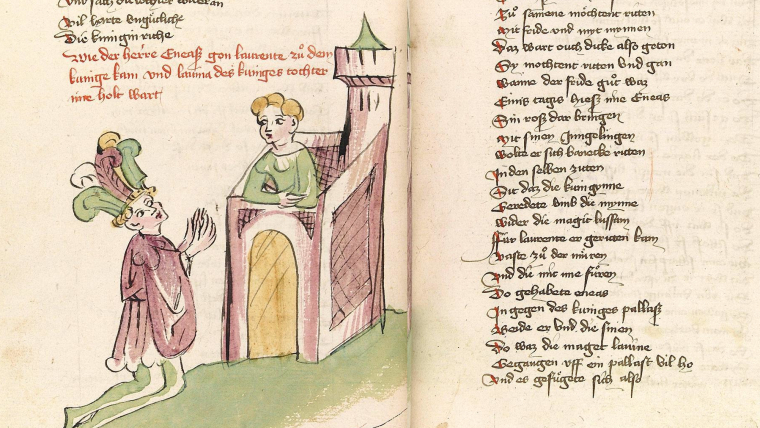 Vil harte engstliche
Die kunigin riche
Wie der herre Eneas gon laurente zů dem
kunige kam vnd lauina des kuniges tochter
ime holt wart
Zů samene möchtent ritten
Mit fride und mit minnen
Daz wart ouch dicke also geton
Sy mochtent ritten vnd gan
Wanne der fride gůt waz
Eins tages hiesz ime Eneas
Sin rosz dar bringen
Mit sinen Jungelingen
Wolte er sich banecke ritten
In den selben ziten
Sit daz die kunigynne
Geredete vmb die mynne
Wider die magit lussam
Für laurente er geritten kam
Vaste zů der muren
Vnd die mit ime fůren
Do gehabete eneas
In gegen des kuniges pallasz
Beide er vnd die sinen
Do waz die maget lauine
Gegangen vff ein pallast vil ho
Vnd es gefůgete sich also